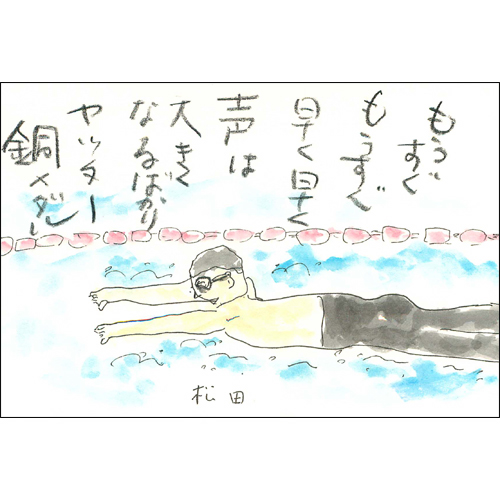 もうすぐ
もうすぐ
早く早く
声は
大きく
なるばかり
ヤッター
銅メダル
松田